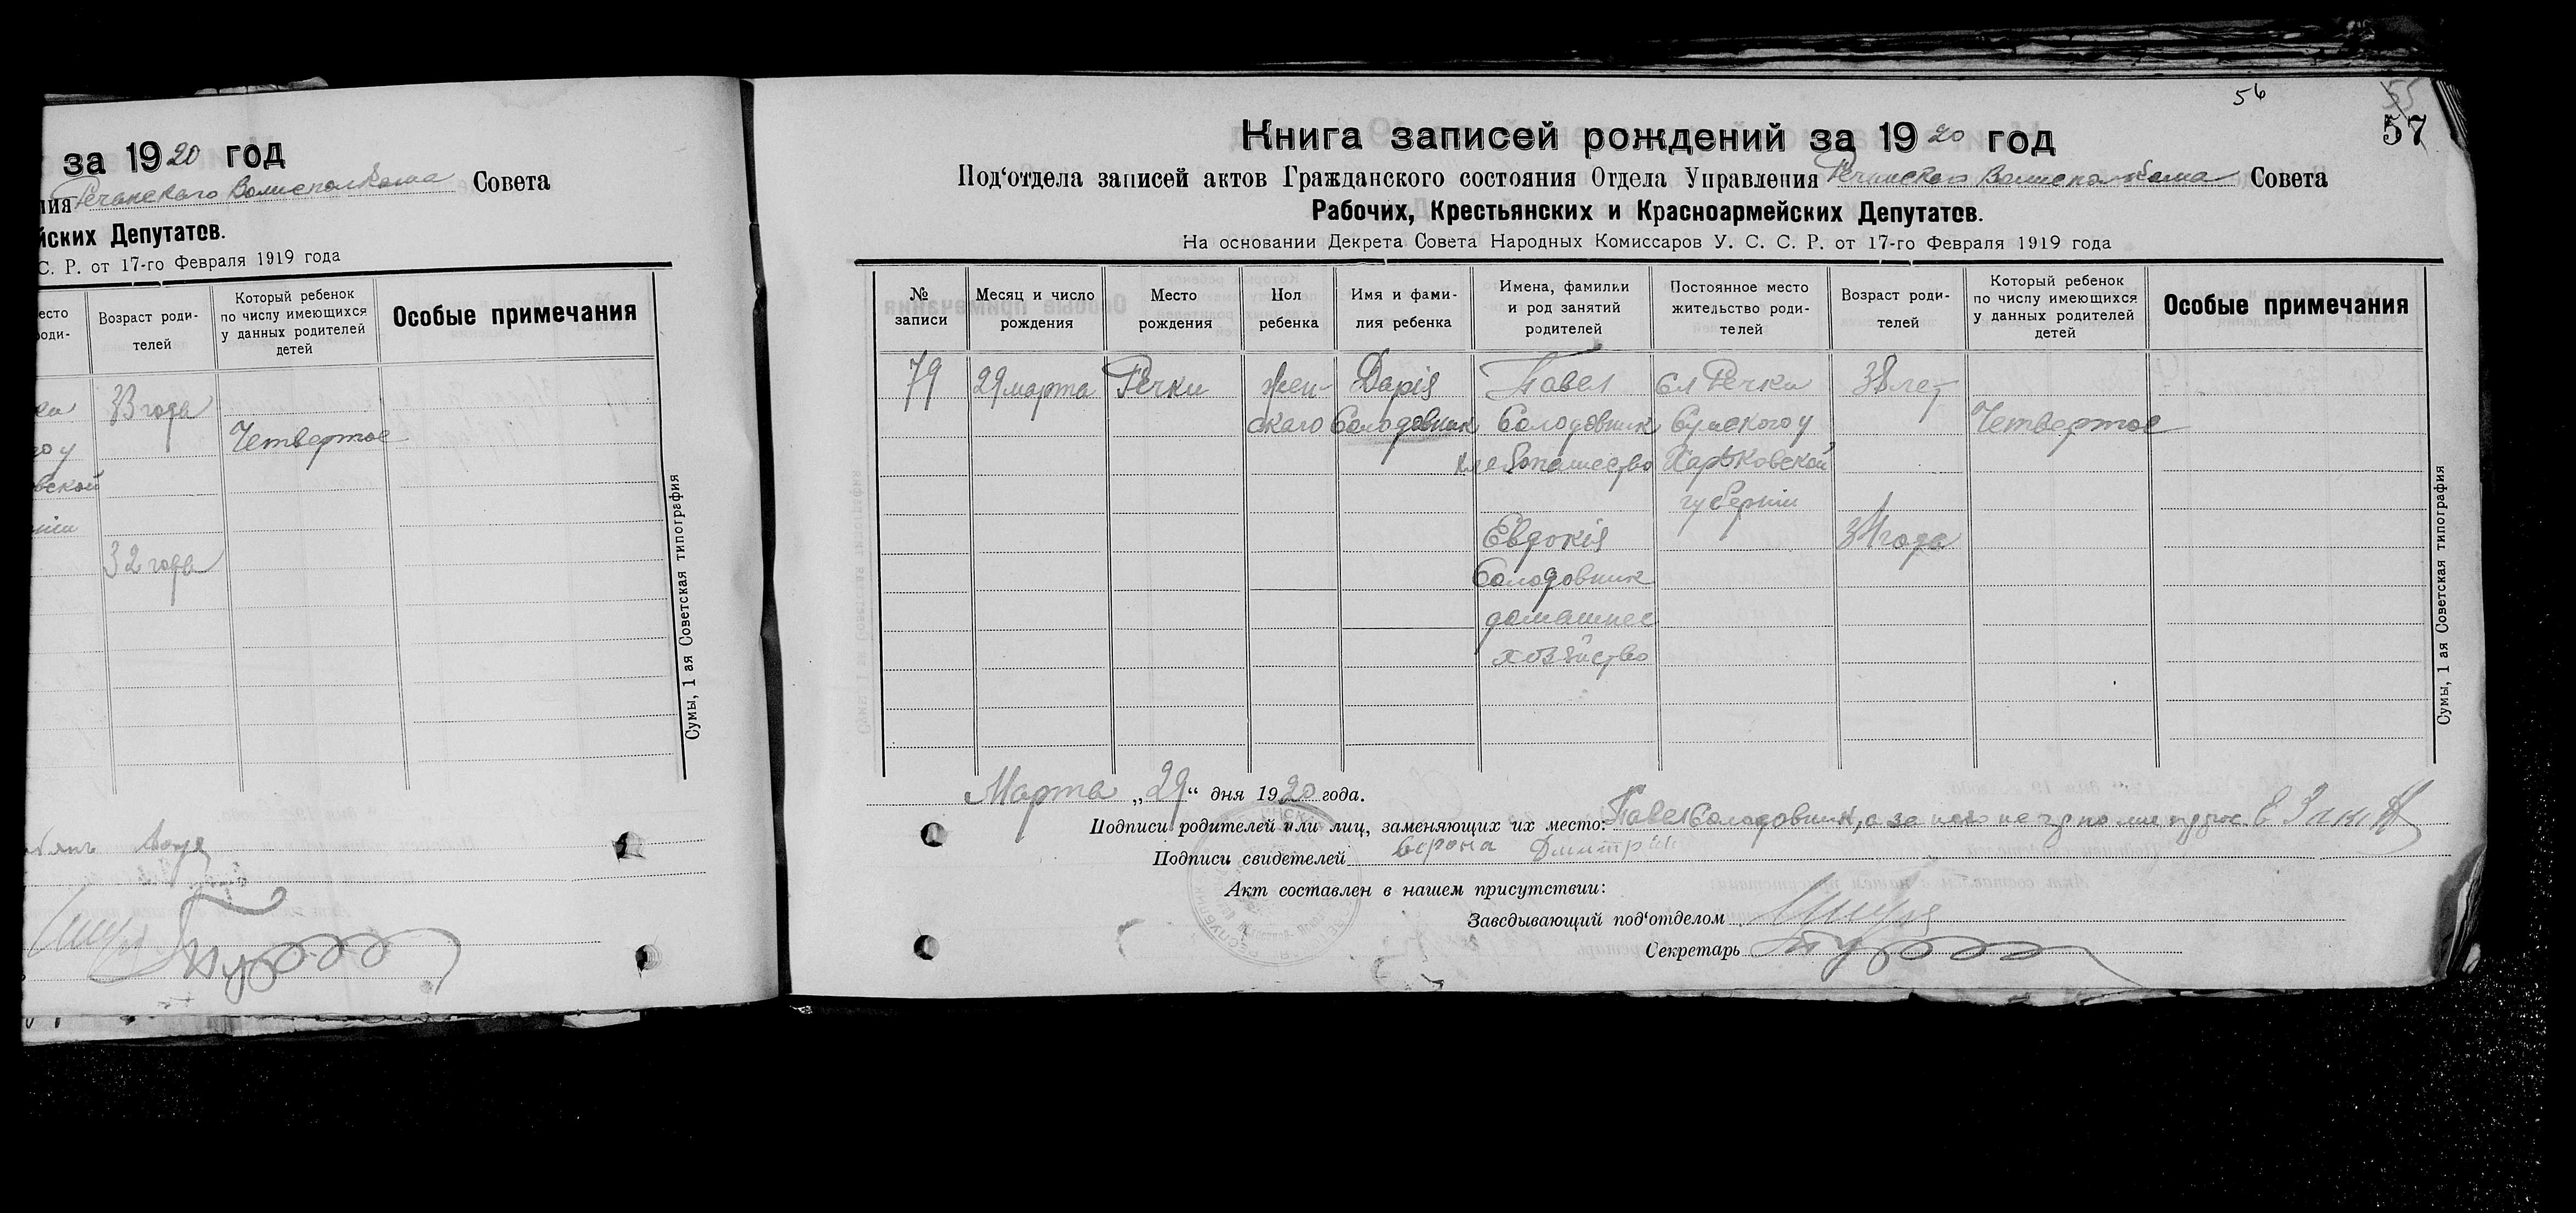 за 1920 год
ния Речанского Волисполкома Совета
йских Депутатов.
С. Р. от 17-го Февраля 1919 года
есто
оди-
Возраст роди-
телей
Который ребенок
по числу имеющихся
у данных родителей
детей
Особые примечания
33 года
го у
Четвертое
вской
32 года
Сумы, 1 ая Советская типография
56
55
57
Книга записей рождений за 1920 год
Под‘отдела записей актов Гражданского состояния Отдела Управления Речанского Волисполкома Совета
Рабочих, Крестьянских и Красноармейских Депутатов.
На основании Декрета Совета Народных Комиссаров У. С. С. Р. от 17-го Февраля 1919 года
№
записи
Месяц и число
рождения
Место
рождения
Пол
ребенка
Имя и фами-
лия ребенка
Имена, фамилии
и род занятий
родителей
Постоянное место
жительство роди-
телей
Возраст роди-
телей
Который ребенок
по числу имеющихся
у данных родителей
детей
Особые примечания
79 29 марта Речки жен- Дарія Павел сл Речки 38 лет
скаго Солодовник Солодовник Сумского у Четвертое
хлебопашество Харьковской
губерніи
Евдокія 34 года
Солодовник
домашнее
хозяйство
Сумы, 1 ая Советская типография
Марта „29“ дня 1920 года.
Подписи родителей или лиц, заменяющих их место: Павел Солодовник, а за него
Подписи свидетелей Ворона Дмитрій
Акт составлен в нашем присутствии:
Заведывающий под‘отделом
Секретарь